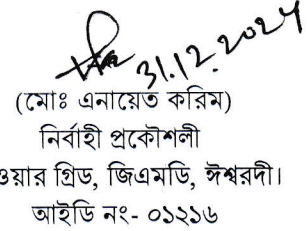 31.12.2024
(মোঃ এনায়েত করিম)
নির্বাহী প্রকৌশলী
ওয়ার গ্রিড, জিএমডি, ঈশ্বরদী।
আইডি নং- ০১২১৬